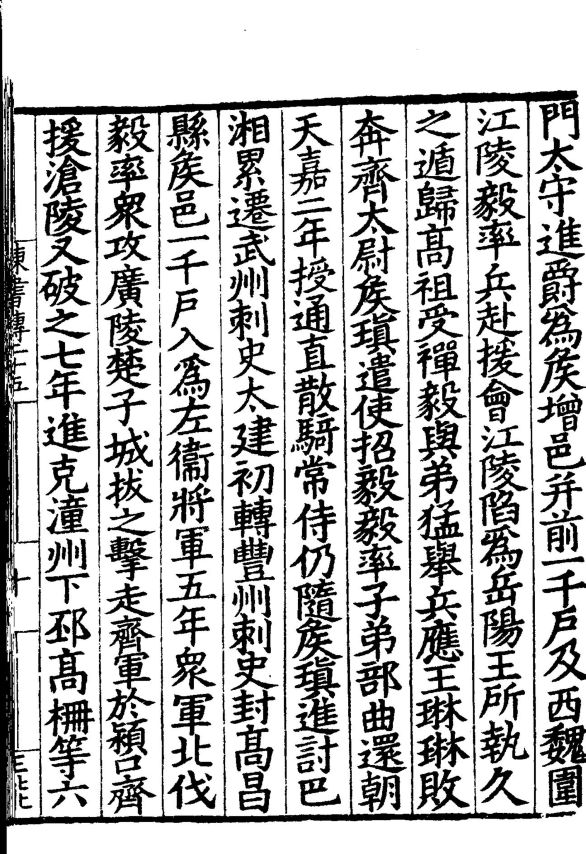 門太守進爵爲矦增邑并前一千戶及西魏圍
江陵毅率兵赴援會江陵陷爲岳陽王所執久
之遁歸高祖受禪毅與弟猛舉兵應王琳琳敗
奔齊太尉矦瑱遣使招毅毅率子弟部曲還朝
天嘉二年授通直散騎常侍仍隨矦瑱進討巴
湘累遷武州刺史太建初轉豐州刺史封髙昌
縣矦邑一千戶入爲左衞將軍五年衆軍北伐
毅率衆攻廣陵楚子城拔之擊走齊軍於潁口齊
援滄陵又破之七年進克潼州下邳髙柵等六
陳書傳二十五
十